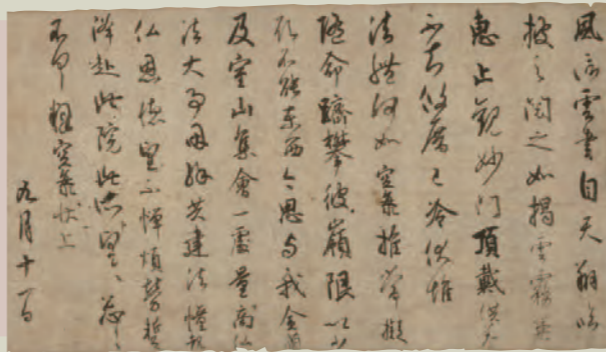 風信雲書自天翔臨
披之閲之如掲雲霧兼
恵止観妙門頂戴供養
不知攸厝已冷伏惟
法體何如空海推常擬
随命躋攀彼嶺限以少
願不能東西今思与我金蘭
及室山集會一處量商仏
法大事因縁共建法幢報
仏恩徳望不憚煩勞蹔
降赴此院此所望々忩々
不具釋空海状上
九月十一日